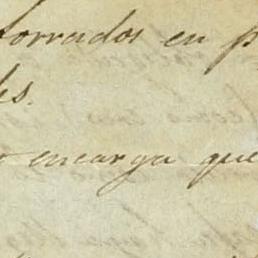 forrados en p
les.
encarga que